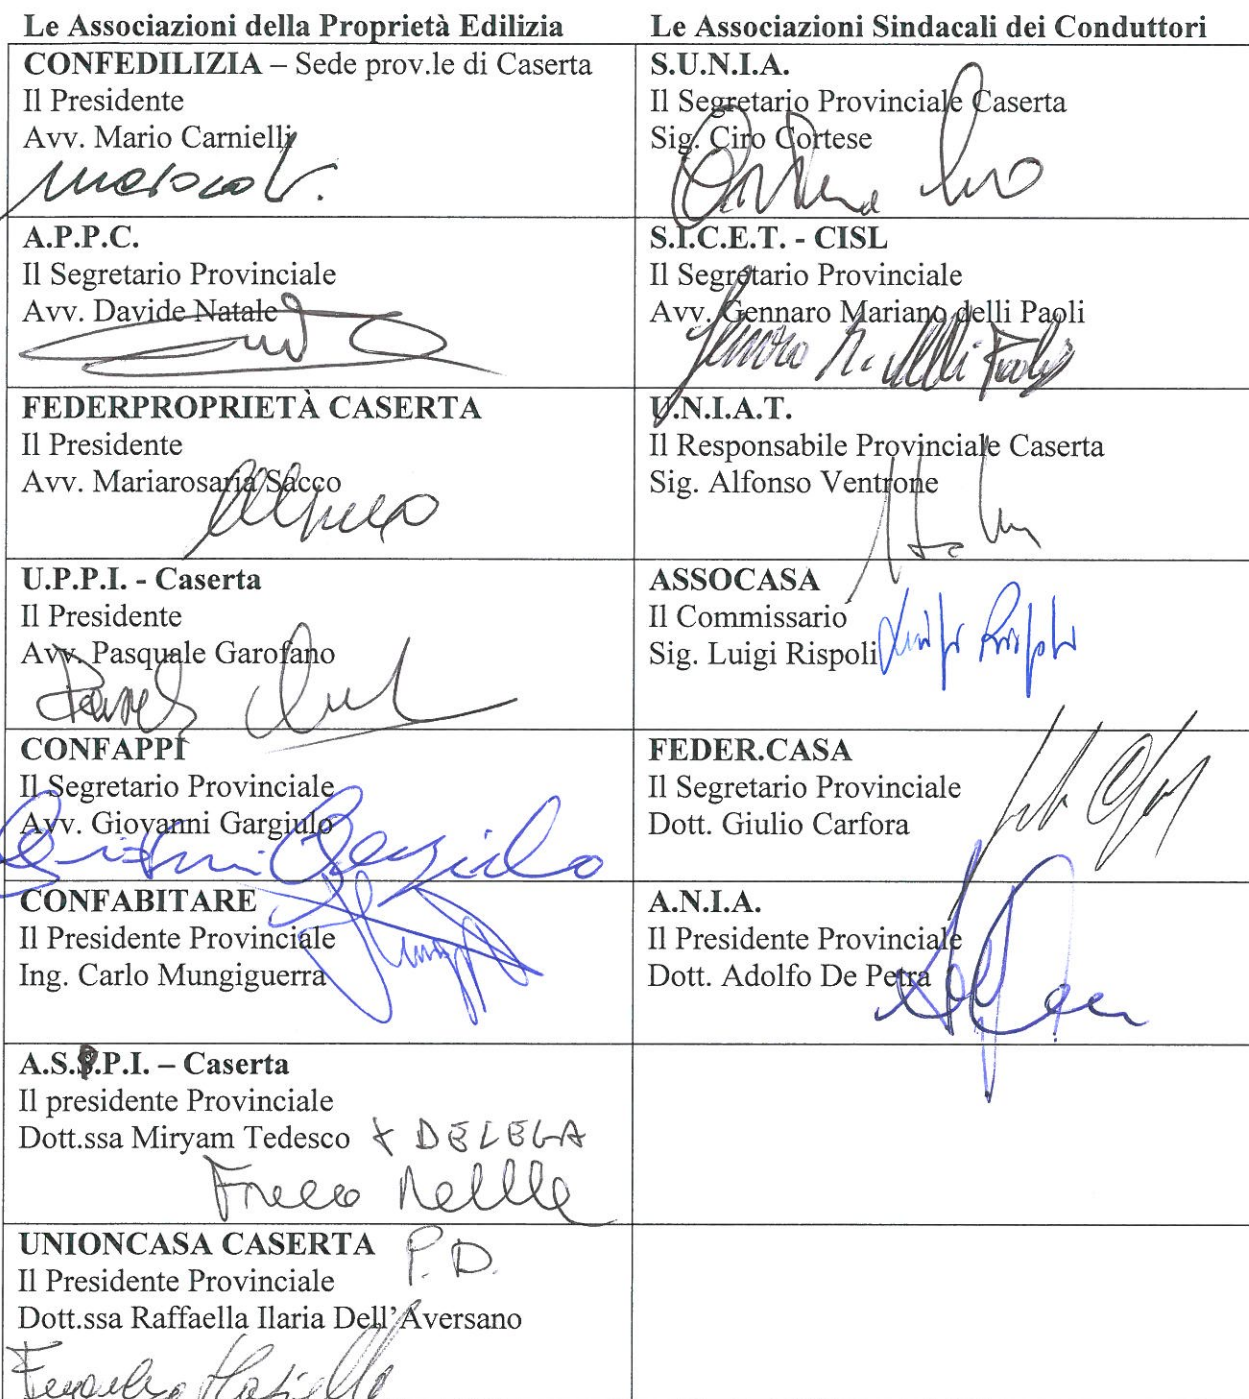 Le Associazioni della Proprietà Edilizia
Le Associazioni Sindacali dei Conduttori
CONFEDILIZIA – Sede prov.le di Caserta
Il Presidente
Avv. Mario Carnielli
S.U.N.I.A.
Il Segretario Provinciale Caserta
Sig. Ciro Cortese
A.P.P.C.
Il Segretario Provinciale
Avv. Davide Natale
S.I.C.E.T. - CISL
Il Segretario Provinciale
Avv. Gennaro Mariano delli Paoli
FEDERPROPRIETÀ CASERTA
Il Presidente
Avv. Mariarosaria Sacco
U.N.I.A.T.
Il Responsabile Provinciale Caserta
Sig. Alfonso Ventrone
U.P.P.I. - Caserta
Il Presidente
Avv. Pasquale Garofano
ASSOCASA
Il Commissario
Sig. Luigi Rispoli
Luigi Rispoli
CONFAPPI
Il Segretario Provinciale
Avv. Giovanni Gargiulo
Giovanni Gargiulo
FEDER.CASA
Il Segretario Provinciale
Dott. Giulio Carfora
CONFABITARE
Il Presidente Provinciale
Ing. Carlo Mungiguerra
A.N.I.A.
Il Presidente Provinciale
Dott. Adolfo De Petra
A.S.P.P.I. – Caserta
Il presidente Provinciale
Dott.ssa Miryam Tedesco x DELEGA
UNIONCASA CASERTA P.D.
Il Presidente Provinciale
Dott.ssa Raffaella Ilaria Dell'Aversano